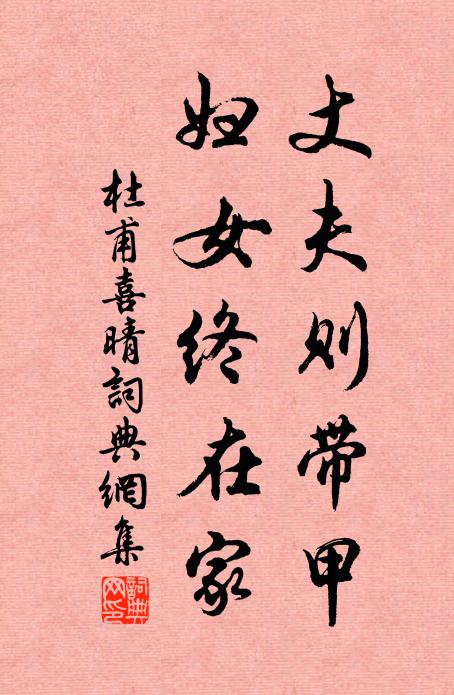 丈夫则带甲
妇女终在家
杜甫喜晴詞典網集
詞典網印